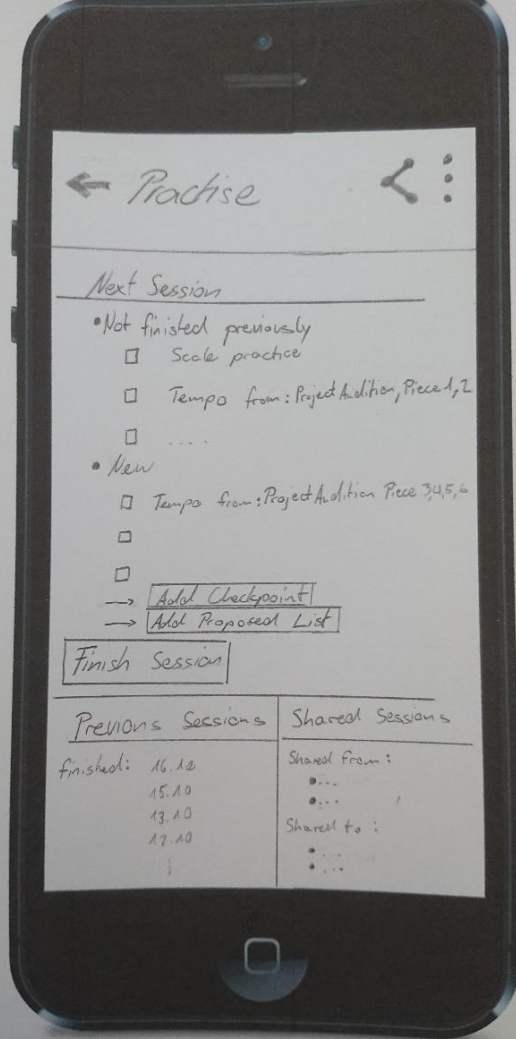 Practise
Next Session
• Not finisted previously
Scale practice
Tempo from: Project Audition, Piece 1, 2
....
• New
Tempo from: Project Audition Piece 3,4,5,6
→ Add Checkpoint
→ Add Proposed List
Finish Session
Previous Sessions
finished: 16.10
15.10
13.10
12.10
Shared Sessions
Shared from:
• ...
• ...
Shared to:
• ...
• ...